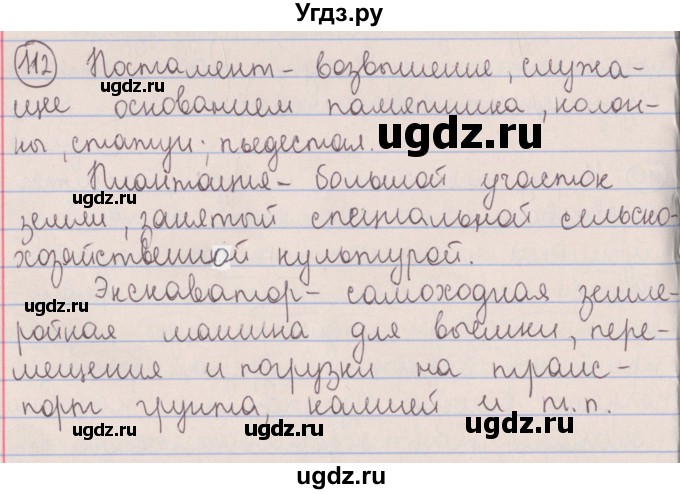 Угдз.ру
112 Постамент – возвышение, служа-
щее основанием памятника, колон-
ны, статуи; пьедестал.
Плантация – большой участок
земли, занятый специальной сельско-
хозяйственной культурой.
Экскаватор – самоходная земле-
ройная машина для выемки, пере-
мещения и погрузки на транс-
порт грунта, камней и т.п.
ugdz.ru
ugdz.ru
ugdz.ru
ugdz.ru
ugdz.ru
ugdz.ru
ugdz.ru
ugdz.ru
ugdz.ru